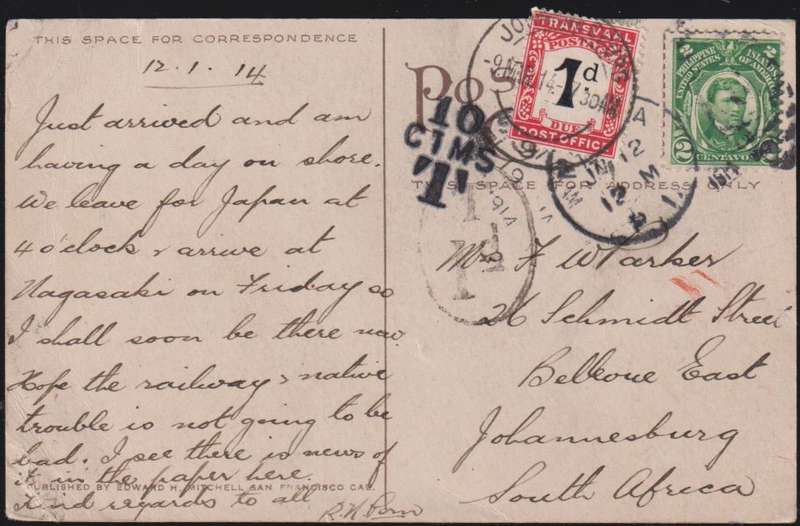 THIS SPACE FOR CORRESPONDENCE
12.1.14
Just arrived and am
having a day on shore.
We leave for Japan at
4 o'clock & arrive at
Nagasaki on Friday so
I shall soon be there now.
Hope the railway & native
trouble is not going to be
bad. I see there is news of
it in the paper here.
PUBLISHED BY EDWARD H. MITCHELL SAN FRANCISCO CAL.
Kind regards to all
Po
10
CTMS
'1'
TRANSVAAL
POSTAGE
1d
DUE
POST OFFICE
2 2
PHILIPPINE ISLANDS
UNITED STATES OF AMERICA
2 CENTAVOS 2
JAN 12
12 M
P.I.
1914
THIS SPACE FOR ADDRESS ONLY
1d
Mrs F W Parker
26 Schmidt Street
Bellevue East
Johannesburg
South Africa